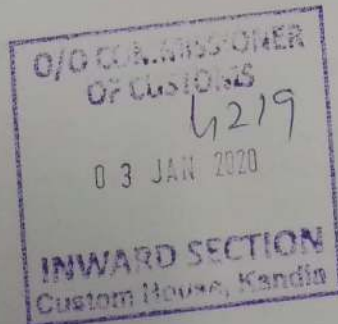 O/O COMMISSIONER
OF CUSTOMS
4219
03 JAN 2020
INWARD SECTION
Custom House, Kandla